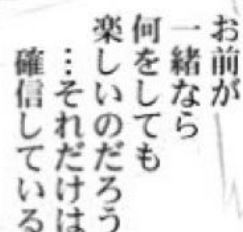 お前が
一緒なら
何をしても
楽しいのだろう
…それだけは
確信している